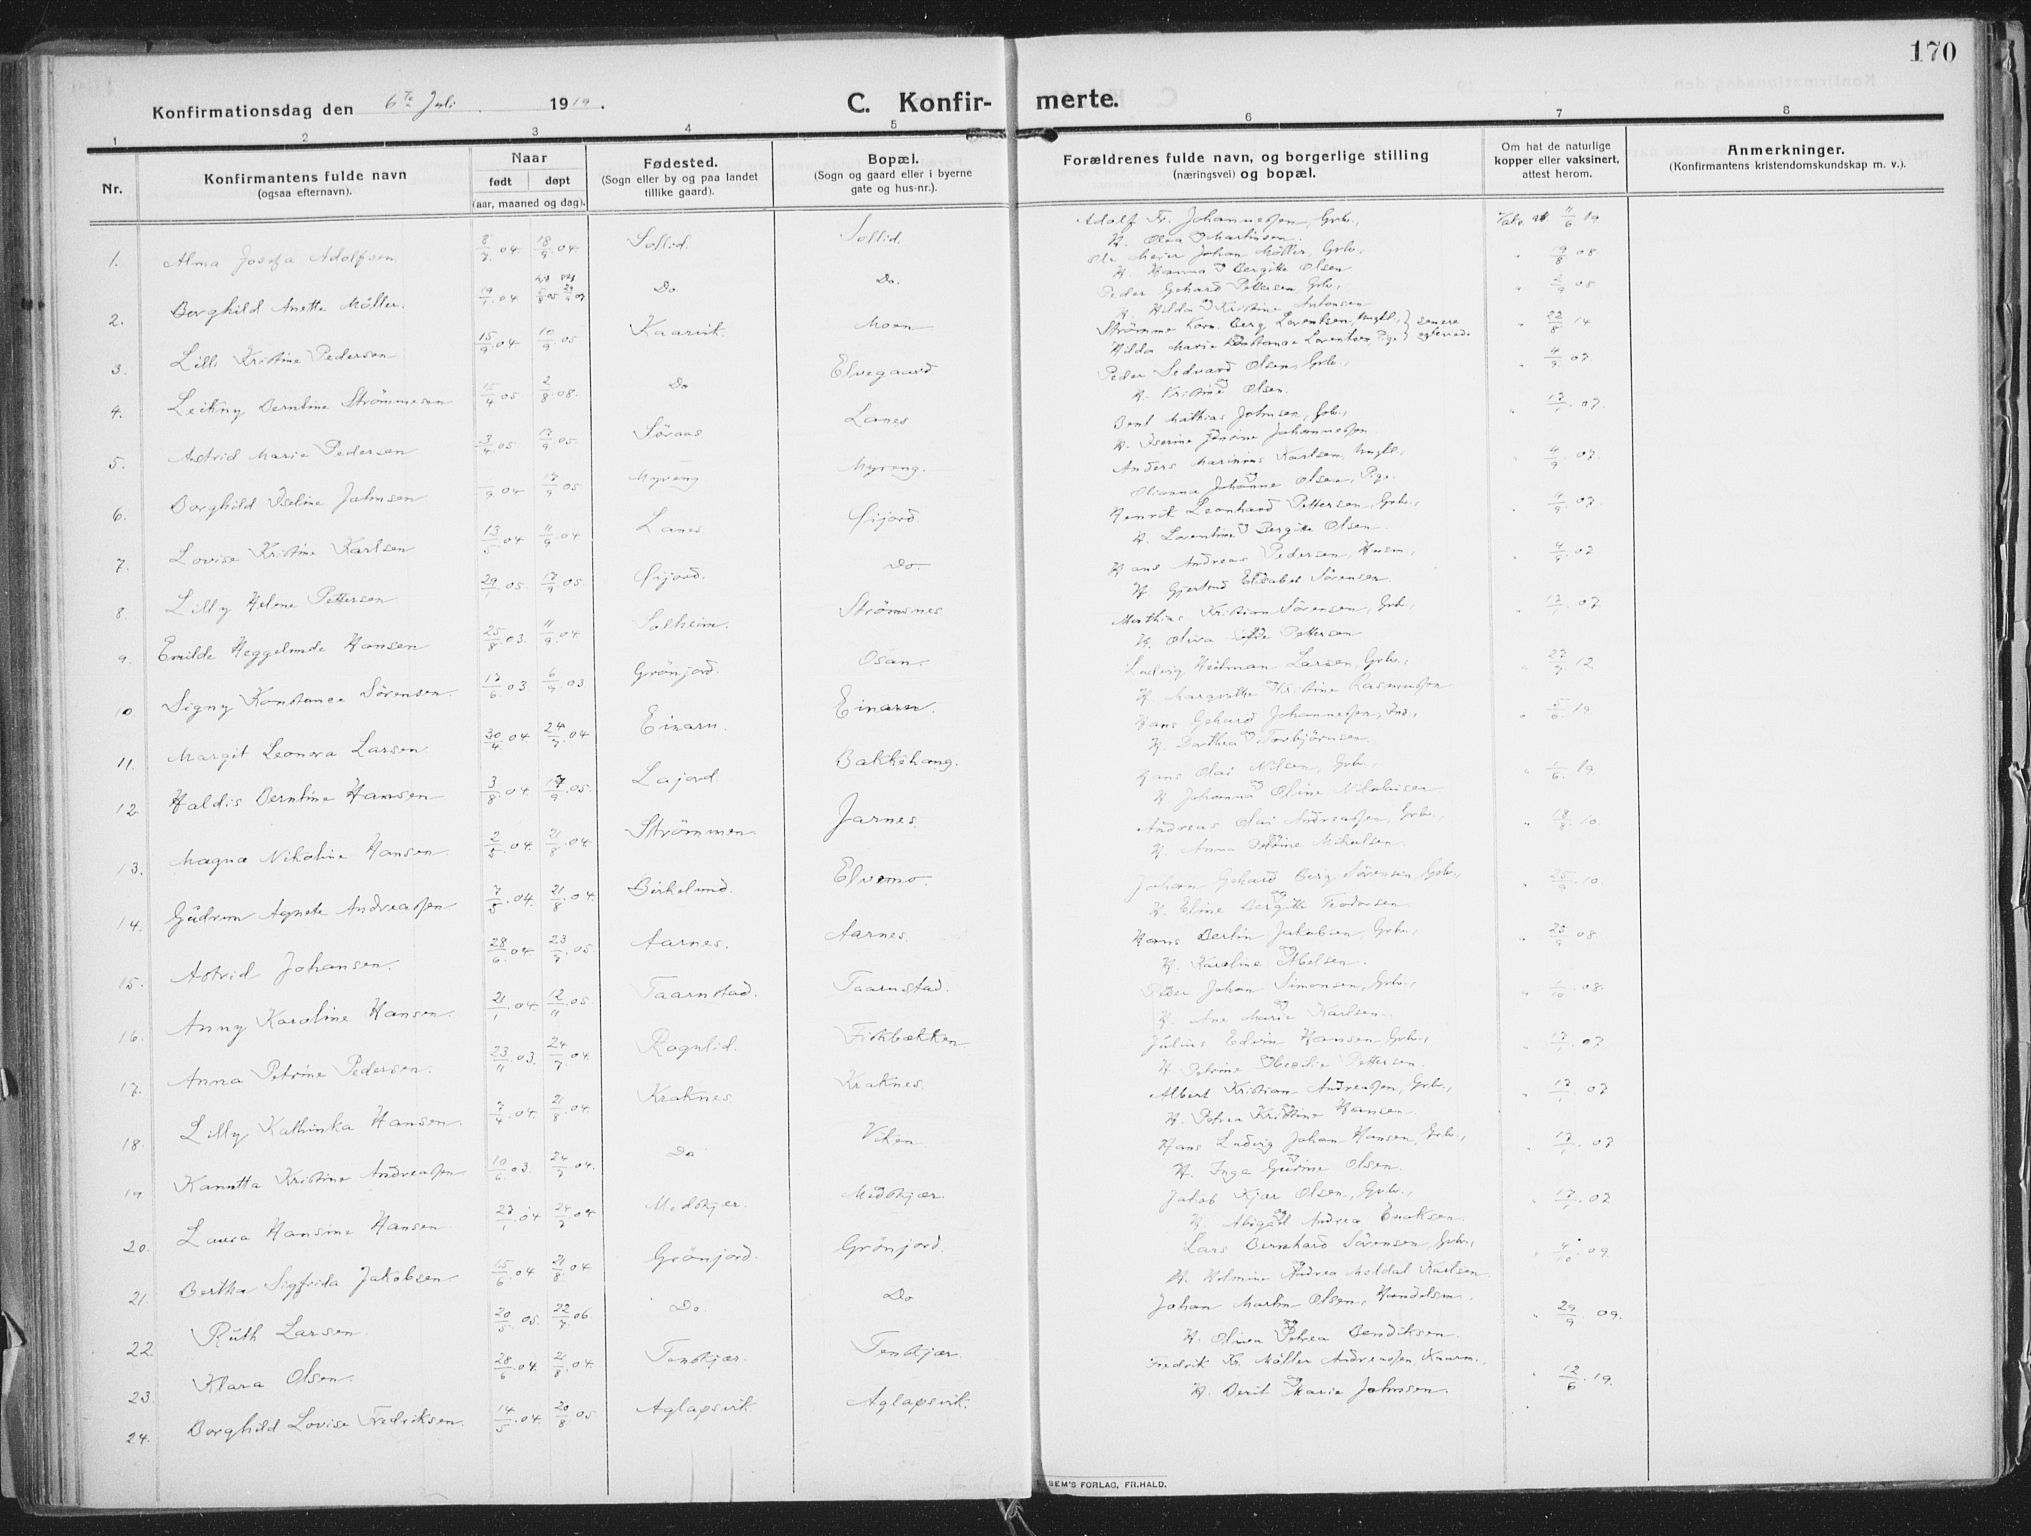 170
Konfirmationsdag den 6te Juli 1919.
C. Konfir- merte.
1 2 3 4 5 6 7 8
Nr.
Konfirmantens fulde navn
(ogsaa efternavn).
Naar
født døpt
(aar, maaned og dag).
Fødested.
(Sogn eller by og paa landet
tillike gaard).
Bopæl.
(Sogn og gaard eller i byerne
gate og hus-nr.).
Forældrenes fulde navn, og borgerlige stilling
(næringsvei) og bopæl.
Om hat de naturlige
kopper eller vaksinert,
attest herom.
Anmerkninger.
(Konfirmantens kristendomskundskap m. v.).
1. Alma Josefa Adolfsen 8/7 04 18/9 04 Sollid. Sollid. Adolf Fr. Johannessen, Grb., H. Olea Martinsen. Vakc. 11/6 19
2. Borghild Anette Møller. 19/1 04 Do Do. Ole Meier Johan Møller, Grb., H. Hanna Bergitte Olsen " 19/8 08
3. Lilli Kristine Pedersen 15/9 04 10/9 05 Kaarvik Moen Peder Gehard Pettersen, Grb., H. Hilda Kristine Antonsen " 2/9 08
4. Leikny Berntine Strømmesen 15/4 05 2/8 08. Do Elvegaard Strømme Korn. Berg Lorentsen, Ungk., Hilda Marie Konstance Lorentsen, Pge. } senere egteviede " 22/8 14
5. Astrid Marie Pedersen 3/4 05 17/9 05 Søraas Lanes Peder Sedvard Olsen, Grb., H. Kristine Olsen. " 4/9 07
6. Borghild Iseline Johnsen /9 04 17/9 05 Myreng Myreng. Bent Mathias Johnsen, Grb., H. Iserine Johannessen " 17/1 07
7. Lovise Kristine Karlsen 13/5 04 11/9 04 Lanes Øijord Anders Marinius Karlsen, Ungk., Olianna Johanne Olsen, Pge. " 4/9 07
8. Lilly Helene Pettersen 29/1 05 17/9 05 Øijord. Do Henrik Leonhard Pettersen, Grb., H. Lorentine Bergitte Olsen. " 4/9 07
9. Emilde Heggelunde Hansen 25/8 03. 11/9 04 Solheim. Strømsnes Hans Andreas Pedersen, Husm., H. Gjertrud Elisabet Sørensen. " 4/9 07
10 Signy Konstance Sørensen. 17/6 03 6/9 03 Grønjord. Osan. Mathias Kristian Sørensen, Grb., H. Oliva Pettersen " 17/1 07
11. Margit Leonora Larsen 30/4 04. 24/7 04 Einarn. Einarn. Ludvig Heitman Larsen, Grb., H. Margrethe Kristine Rasmussen " 27/7 12
12. Haldis Berntine Hansen 3/8 04 17/9 05. Lajord. Bakkehaug. Hans Gehard Johannessen, Ind., H. Dorthea Torbjørnsen. " 5/6 19
13. Magna Nikoline Hansen. 2/5 04. 21/8 04. Strømmen. Jarnes. Hans Olai Nilsen, Grb., H. Johanna Oline Nikolaisen " 1/6 19
14. Gudrun Agnete Andreassen 7/5 04. 21/8 04. Birkelund. Elvemo. Andreas Olai Andreassen, Grb., H. Anna Petrine Mikalsen. " 18/8 10.
15. Astrid Johansen. 28/6 04 23/7 05 Aarnes. Aarnes. Johan Gehard Berg Sørensen, Grb., H. Eline Bergitte Teodorsen. " 25/9 10.
16. Anny Karoline Hansen. 21/1 04. 12/11 05. Taarnstad. Taarnstad. Hans Bertin Jakobsen, Grb., H. Karoline Abelsen. " 25/9 08.
17. Anna Petrine Pedersen. 23/11 03. 24/7 04 Rognlid. Fiskbækken Peder Johan Simonsen, Grb., H. Ane Marie Karlsen. " 1/10 08.
18. Lilly Kathinka Hansen. 7/4 04. 21/8 04. Kraknes. Kraknes. Julius Edvin Hansen, Grb., H. Petrine Pettersen. " 17/1 07
19 Kanutta Kristine Andreassen 10/6 03. 24/7 04. Do Viken Albert Kristian Andreassen, Grb., H. Petrea Kristine Hansen. " 17/1 07
20. Laura Hansine Hansen 27/1 04 24/7 04 Medkjær. Medkjær. Hans Ludvig Johan Hansen, Grb., H. Inga Gurine Olsen. " 17/1 07
21. Bertha Sigfrida Jakobsen. 15/6 04 21/8 04 Grønjord. Grønjord. Jakob Kjær Olsen, Grb., H. Abigael Andrea Enoksen. " 17/1 07
22. Ruth Larsen. 20/5 05. 22/7 06. Do. Do Lars Bernhard Sørensen, Grb., H. Holmine Andrea Moldal Karlsen. " 4/10 09.
23. Klara Olsen. 28/6 04. 21/8 04 Tenskjær. Tenskjær. Johan Martin Olsen, Handelsm., H. Olina Petrea Bendiksen. " 29/9 09.
24. Borghild Lovise Fredriksen. 14/5 04. 20/8 05 Aglapsvik Aglapsvik. Fredrik Kr. Møller Andreassen, H. Berit Marie Johnsen. " 12/6 19.
SEM'S FORLAG, FR.HALD.